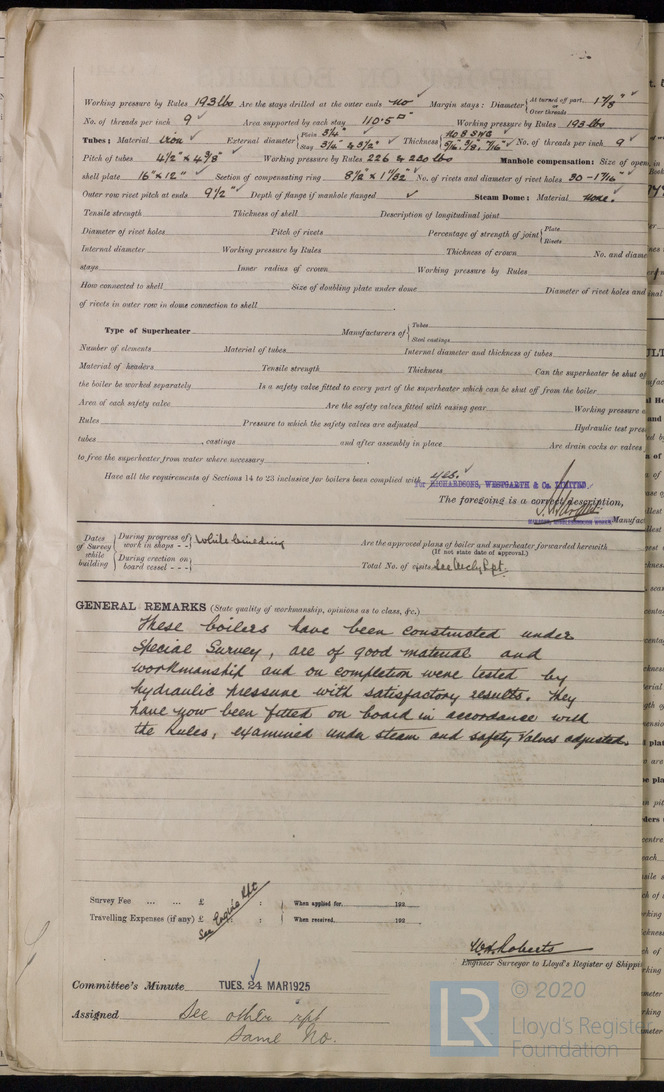 Working pressure by Rules 193 lbs Are the stays drilled at the outer ends no Margin stays: Diameter { At turned off part, or Over threads 1 7/8"
No. of threads per inch 9 Area supported by each stay 110.5 □" Working pressure by Rules 193 lbs
Tubes: Material iron External diameter { Plain 3 1/4" Stay 3 1/4" & 3 1/2" Thickness { No 8 SWG 5/16", 3/8", 7/16" No. of threads per inch 9
Pitch of tubes 4 1/2" x 4 3/8" Working pressure by Rules 226 & 220 lbs Manhole compensation: Size of open
shell plate 16" x 12" Section of compensating ring 8 1/2" x 1 11/32" No. of rivets and diameter of rivet holes 30 - 1 7/16"
Outer row rivet pitch at ends 9 1/2" Depth of flange if manhole flanged Steam Dome: Material none.
Tensile strength Thickness of shell Description of longitudinal joint
Diameter of rivet holes Pitch of rivets Percentage of strength of joint { Plate Rivets
Internal diameter Working pressure by Rules Thickness of crown No. and diame
stays Inner radius of crown Working pressure by Rules
How connected to shell Size of doubling plate under dome Diameter of rivet holes and
of rivets in outer row in dome connection to shell
Type of Superheater Manufacturers of { Tubes Steel castings
Number of elements Material of tubes Internal diameter and thickness of tubes
Material of headers Tensile strength Thickness Can the superheater be shut of
the boiler be worked separately Is a safety valve fitted to every part of the superheater which can be shut off from the boiler
Area of each safety valve Are the safety valves fitted with easing gear Working pressure
Rules Pressure to which the safety valves are adjusted Hydraulic test pres
tubes , castings and after assembly in place Are drain cocks or valves
to free the superheater from water where necessary
Have all the requirements of Sections 14 to 23 inclusive for boilers been complied with yes.
For RICHARDSONS, WESTGARTH & Co. LIMITED.
The foregoing is a correct description,
Manufac
Dates of Survey while building { During progress of work in shops - - } While building Are the approved plans of boiler and superheater forwarded herewith
(If not state date of approval.)
{ During erection on board vessel - - - } Total No. of visits See Mchy Rpt.
GENERAL REMARKS (State quality of workmanship, opinions as to class, &c.)
These boilers have been constructed under
Special Survey, are of good material and
workmanship and on completion were tested by
hydraulic pressure with satisfactory results. They
have now been fitted on board in accordance with
the Rules, examined under steam and safety valves adjusted.
Survey Fee ... ... £ : : When applied for, 192
Travelling Expenses (if any) £ : : When received, 192
See Engine Rpt
W.H. Roberts
Engineer Surveyor to Lloyd's Register of Shippi
Committee's Minute TUES. 24 MAR 1925
Assigned See other rpt
same No.
© 2020
LR Lloyd's Registe
Foundation